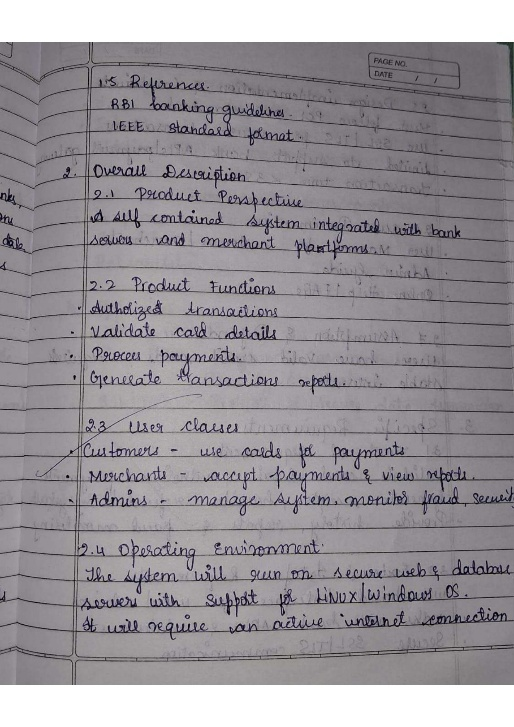 PAGE NO.
DATE / /
1.5 References.
RBI banking guidelines.
IEEE standard format.
2. Overall Description
2.1 Product Perspective
A self contained system integrated with bank
servers and merchant plantforms.
2.2 Product Functions
• Authorized transactions
• Validate card details
• Process payments.
• Generate transactions reports.
2.3 User classes
• Customers - use cards for payments
• Merchants - accept payments & view reports.
• Admins - manage system, monitor fraud, securit
2.4 Operating Environment.
The system will run on secure web & database
servers with support for Linux/Windows OS.
It will require an active internet connection